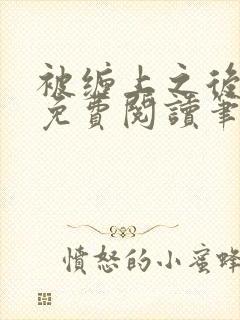 被缠上之後
免費閱讀筆
憤怒的小蜜蜂